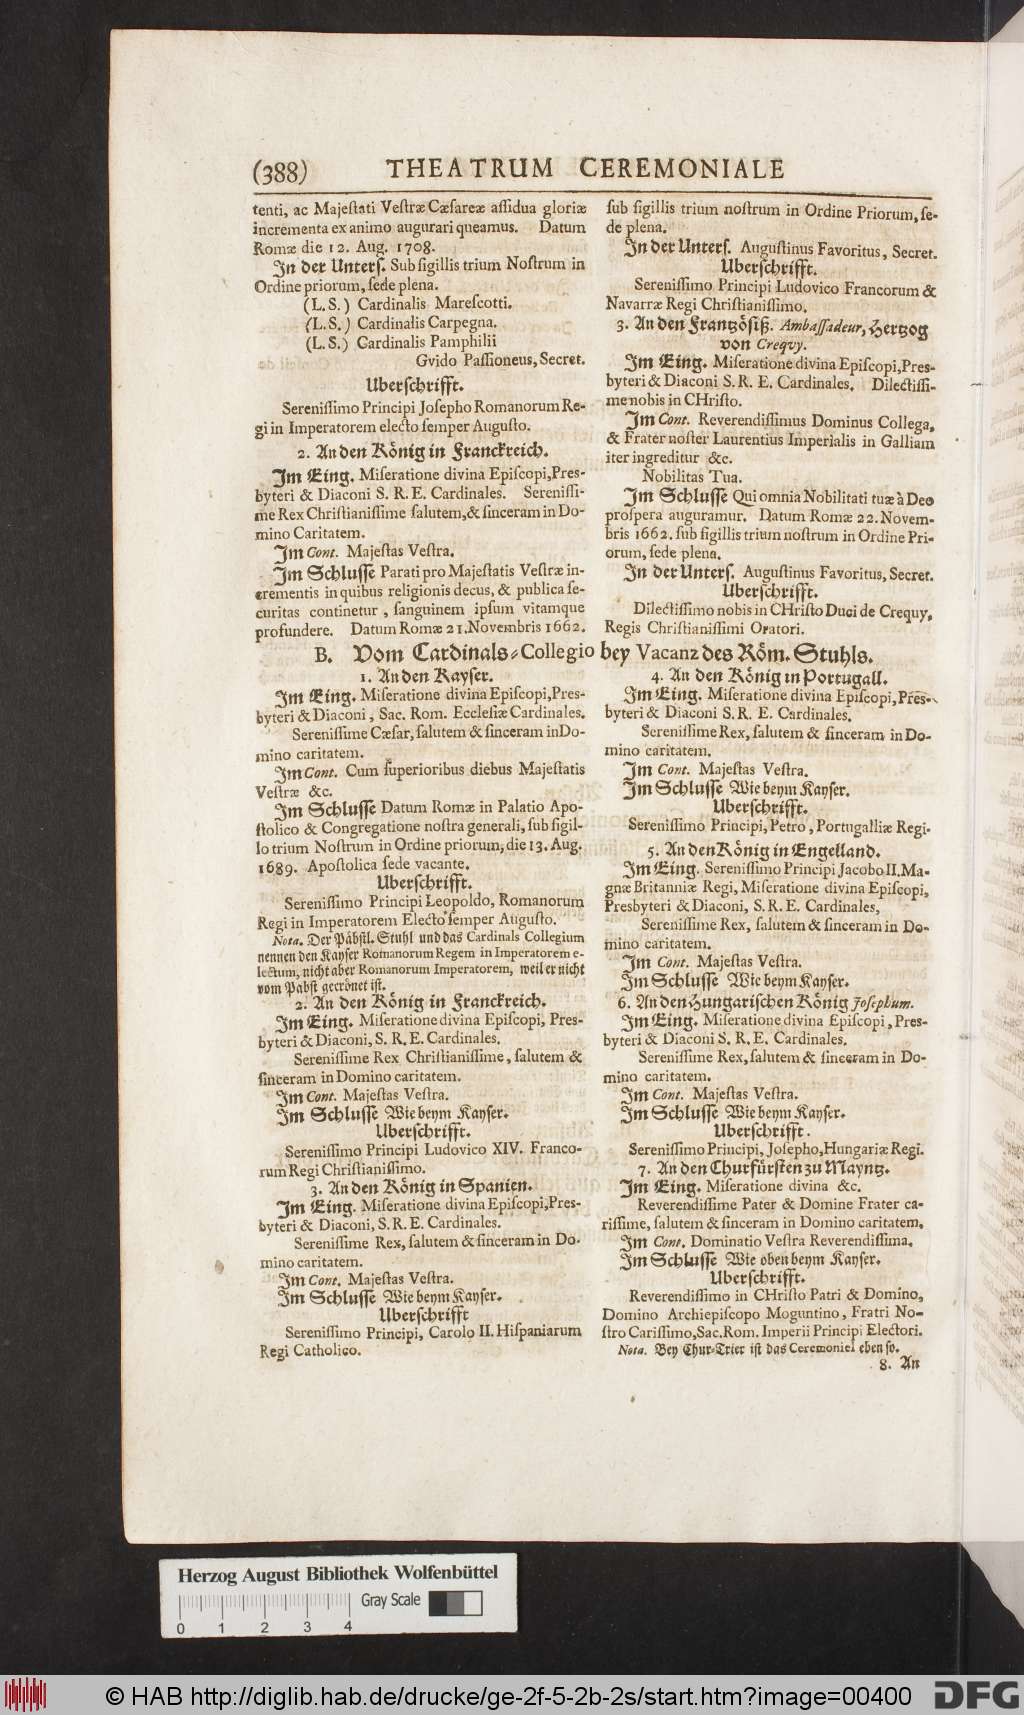 (388) THEATRUM CEREMONIALE
tenti, ac Majeſtati Veſtræ Cæſareæ aſſidua gloriæ
incrementa ex animo augurari queamus. Datum
Romæ die 12. Aug. 1708.
In der Unterſ. Sub ſigillis trium Noſtrum in
Ordine priorum, ſede plena.
(L. S.) Cardinalis Mareſcotti.
(L. S.) Cardinalis Carpegna.
(L. S.) Cardinalis Pamphilii
Gvido Paſſioneus, Secret.
Uberſchrifft.
Sereniſſimo Principi Joſepho Romanorum Re-
gi in Imperatorem electo ſemper Auguſto.
2. An den König in Franckreich.
Im Eing. Miſeratione divina Epiſcopi, Pres-
byteri & Diaconi S. R. E. Cardinales. Sereniſſi-
me Rex Chriſtianiſſime ſalutem, & ſinceram in Do-
mino Caritatem.
Im Cont. Majeſtas Veſtra.
Im Schluſſe Parati pro Majeſtatis Veſtræ in-
crementis in quibus religionis decus, & publica ſe-
curitas continetur, ſanguinem ipſum vitamque
profundere. Datum Romæ 21. Novembris 1662.
ſub ſigillis trium noſtrum in Ordine Priorum, ſe-
de plena.
In der Unterſ. Auguſtinus Favoritus, Secret.
Uberſchrifft.
Sereniſſimo Principi Ludovico Francorum &
Navarræ Regi Chriſtianiſſimo.
3. An den Frantzöſiß. Ambaſſadeur, Hertzog
von Creqvy.
Im Eing. Miſeratione divina Epiſcopi, Pres-
byteri & Diaconi S. R. E. Cardinales. Dilectiſſi-
me nobis in CHriſto.
Im Cont. Reverendiſſimus Dominus Collega,
& Frater noſter Laurentius Imperialis in Galliam
iter ingreditur &c.
Nobilitas Tua.
Im Schluſſe Qui omnia Nobilitati tuæ à Deo
proſpera auguramur. Datum Romæ 22. Novem-
bris 1662. ſub ſigillis trium noſtrum in Ordine Pri-
orum, ſede plena.
In der Unterſ. Auguſtinus Favoritus, Secret.
Uberſchrifft.
Dilectiſſimo nobis in CHriſto Duci de Crequy,
Regis Chriſtianiſſimi Oratori.
B. Vom Cardinals-Collegio bey Vacanz des Röm. Stuhls.
1. An den Kayſer.
Im Eing. Miſeratione divina Epiſcopi, Pres-
byteri & Diaconi, Sac. Rom. Eccleſiæ Cardinales.
Sereniſſime Cæſar, ſalutem & ſinceram in Do-
mino caritatem.
Im Cont. Cum ſuperioribus diebus Majeſtatis
Veſtræ &c.
Im Schluſſe Datum Romæ in Palatio Apo-
ſtolico & Congregatione noſtra generali, ſub ſigil-
lo trium Noſtrum in Ordine priorum, die 13. Aug.
1689. Apoſtolica ſede vacante.
Uberſchrifft.
Sereniſſimo Principi Leopoldo, Romanorum
Regi in Imperatorem Electo ſemper Auguſto.
Nota. Der Päbſtl. Stuhl und das Cardinals Collegium
nennen den Kayſer Romanorum Regem in Imperatorem e-
lectum, nicht aber Romanorum Imperatorem, weil er nicht
vom Pabſt gecrönet iſt.
2. An den König in Franckreich.
Im Eing. Miſeratione divina Epiſcopi, Pres-
byteri & Diaconi, S. R. E. Cardinales.
Sereniſſime Rex Chriſtianiſſime, ſalutem &
ſinceram in Domino caritatem.
Im Cont. Majeſtas Veſtra.
Im Schluſſe Wie beym Kayſer.
Uberſchrifft.
Sereniſſimo Principi Ludovico XIV. Franco-
rum Regi Chriſtianiſſimo.
3. An den König in Spanien.
Im Eing. Miſeratione divina Epiſcopi, Pres-
byteri & Diaconi, S. R. E. Cardinales.
Sereniſſime Rex, ſalutem & ſinceram in Do-
mino caritatem.
Im Cont. Majeſtas Veſtra.
Im Schluſſe Wie beym Kayſer.
Uberſchrifft
Sereniſſimo Principi, Carolo II. Hiſpaniarum
Regi Catholico.
4. An den König in Portugall.
Im Eing. Miſeratione divina Epiſcopi, Pres-
byteri & Diaconi S. R. E. Cardinales.
Sereniſſime Rex, ſalutem & ſinceram in Do-
mino caritatem.
Im Cont. Majeſtas Veſtra.
Im Schluſſe Wie beym Kayſer.
Uberſchrifft.
Sereniſſimo Principi, Petro, Portugalliæ Regi.
5. An den König in Engelland.
Im Eing. Sereniſſimo Principi Jacobo II. Ma-
gnæ Britanniæ Regi, Miſeratione divina Epiſcopi,
Presbyteri & Diaconi, S. R. E. Cardinales,
Sereniſſime Rex, ſalutem & ſinceram in Do-
mino caritatem.
Im Cont. Majeſtas Veſtra.
Im Schluſſe Wie beym Kayſer.
6. An den Hungariſchen König Joſephum.
Im Eing. Miſeratione divina Epiſcopi, Pres-
byteri & Diaconi S. R. E. Cardinales.
Sereniſſime Rex, ſalutem & ſinceram in Do-
mino caritatem.
Im Cont. Majeſtas Veſtra.
Im Schluſſe Wie beym Kayſer.
Uberſchrifft.
Sereniſſimo Principi, Joſepho, Hungariæ Regi.
7. An den Churfürſten zu Mayntz.
Im Eing. Miſeratione divina &c.
Reverendiſſime Pater & Domine Frater ca-
riſſime, ſalutem & ſinceram in Domino caritatem.
Im Cont. Dominatio Veſtra Reverendiſſima.
Im Schluſſe Wie oben beym Kayſer.
Uberſchrifft.
Reverendiſſimo in CHriſto Patri & Domino,
Domino Archiepiſcopo Moguntino, Fratri No-
ſtro Cariſſimo, Sac. Rom. Imperii Principi Electori.
Nota. Bey Chur-Trier iſt das Ceremoniel eben ſo.
8. An
Herzog August Bibliothek Wolfenbüttel
Gray Scale
0 1 2 3 4
© HAB http://diglib.hab.de/drucke/ge-2f-5-2b-2s/start.htm?image=00400
DFG